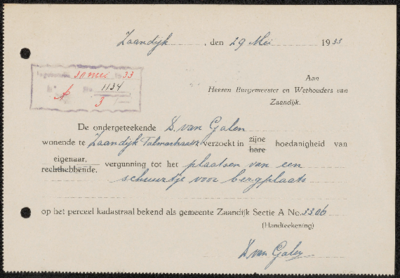 Zaandijk, den 29 Mei 1933
Ingekomen 30 Mei 33
No. 1134
A 3
Aan
Heeren Burgemeester en Wethouders van
Zaandijk.
De ondergeteekende D. van Galen
wonende te Zaandijk verzoekt in zijne
hare hoedanigheid van
eigenaar,
rechthebbende, vergunning tot het plaatsen van een
schuurtje voor bergplaats
op het perceel kadastraal bekend als gemeente Zaandijk Sectie A No. 3306
(Handteekening)
D van Galen